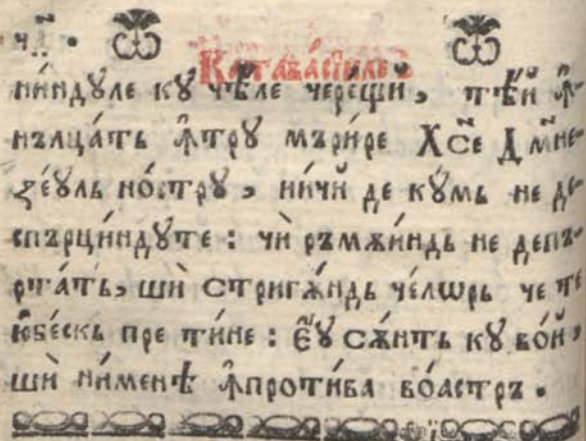 Катава́сїиле
ни́ндꙋле кꙋ чѣ́ле чере́щй, т꙯ѣй ꙟ҆
нълца́ть ꙟ҆трꙋ мъри́ре Хс҃е Дм҃не-
зе́ꙋль но́стрꙋ, ни́чй де кꙋ́мь не де-
спърци́ндꙋте : чѝ ръмѫ́индь не депъ-
рта́ть, шѝ стригѫ́ндь че́лѡрь че те
ю҆бе́скь пре ти́не : Є҆́ꙋ сѫ́нть кꙋ во́й .
шѝ ни́менѣ ꙟ҆проти́ва во́астръ .